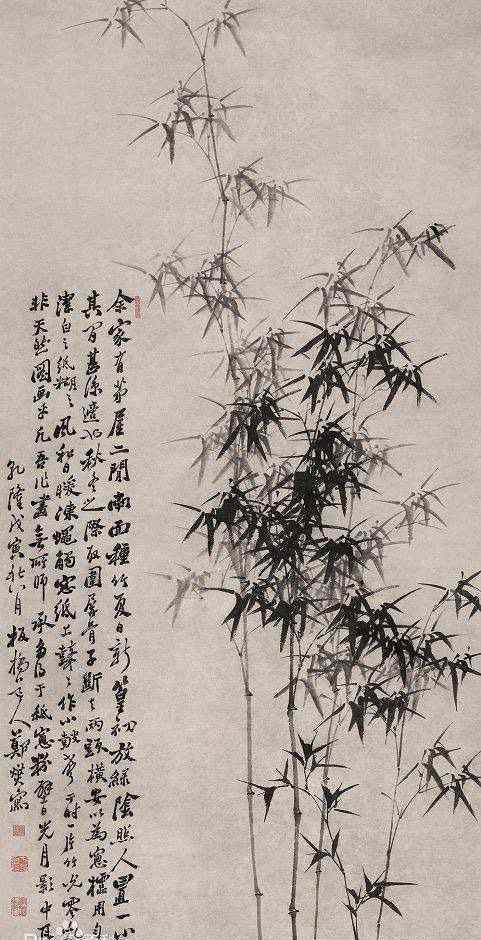 余家有茅屋二間南面種竹夏日新篁初放綠陰照人置一小
其間甚涼適也秋冬之際取圍屏骨子斷兩頭橫安以為窗櫺用
潔白之紙糊之風和日暖凍蠅觸窗紙上鼕々作小鼓聲于時一片竹影零亂
非天然圖画乎凡吾作畫無所師承多得于紙窗粉壁日光月影中耳
乾隆戊寅秋月板橋道人鄭燮寫